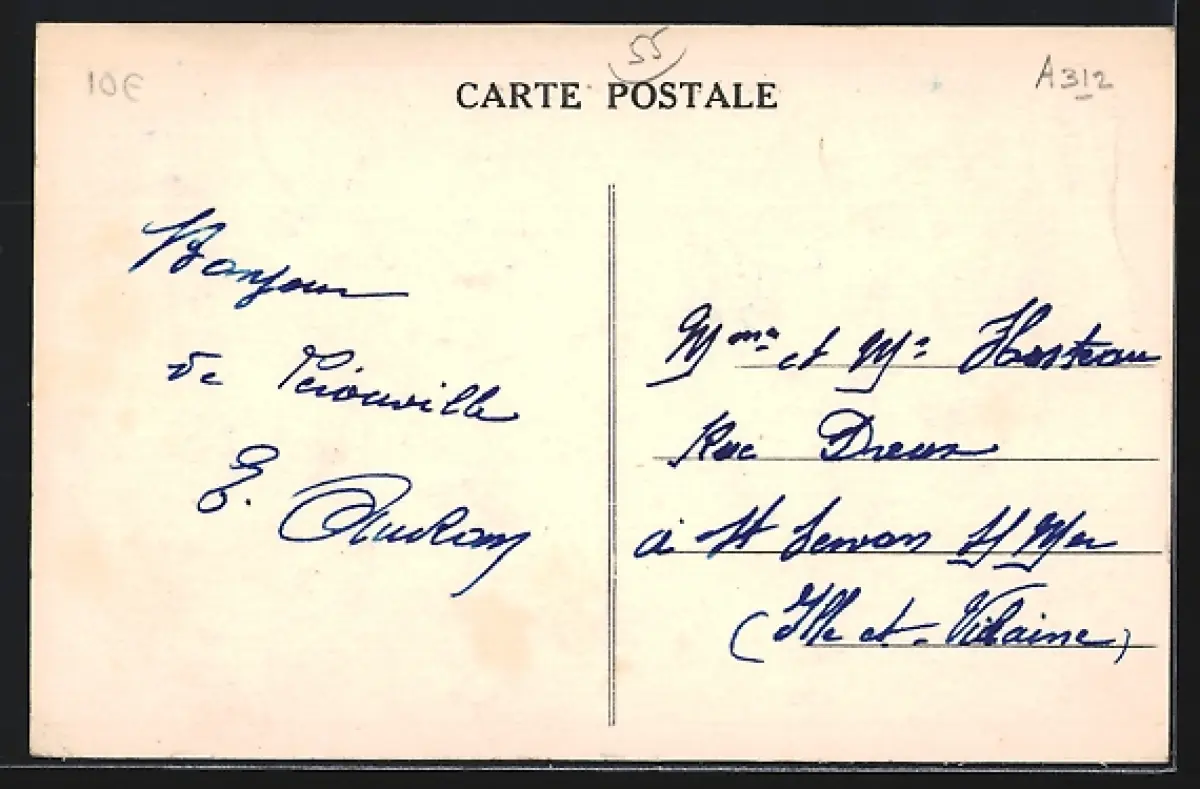 10€
55
A312
CARTE POSTALE
Bonjour
de
E.
Mme et Mr
Rue Dreux
à St Servan s/ Mer
(Ille et-Vilaine)